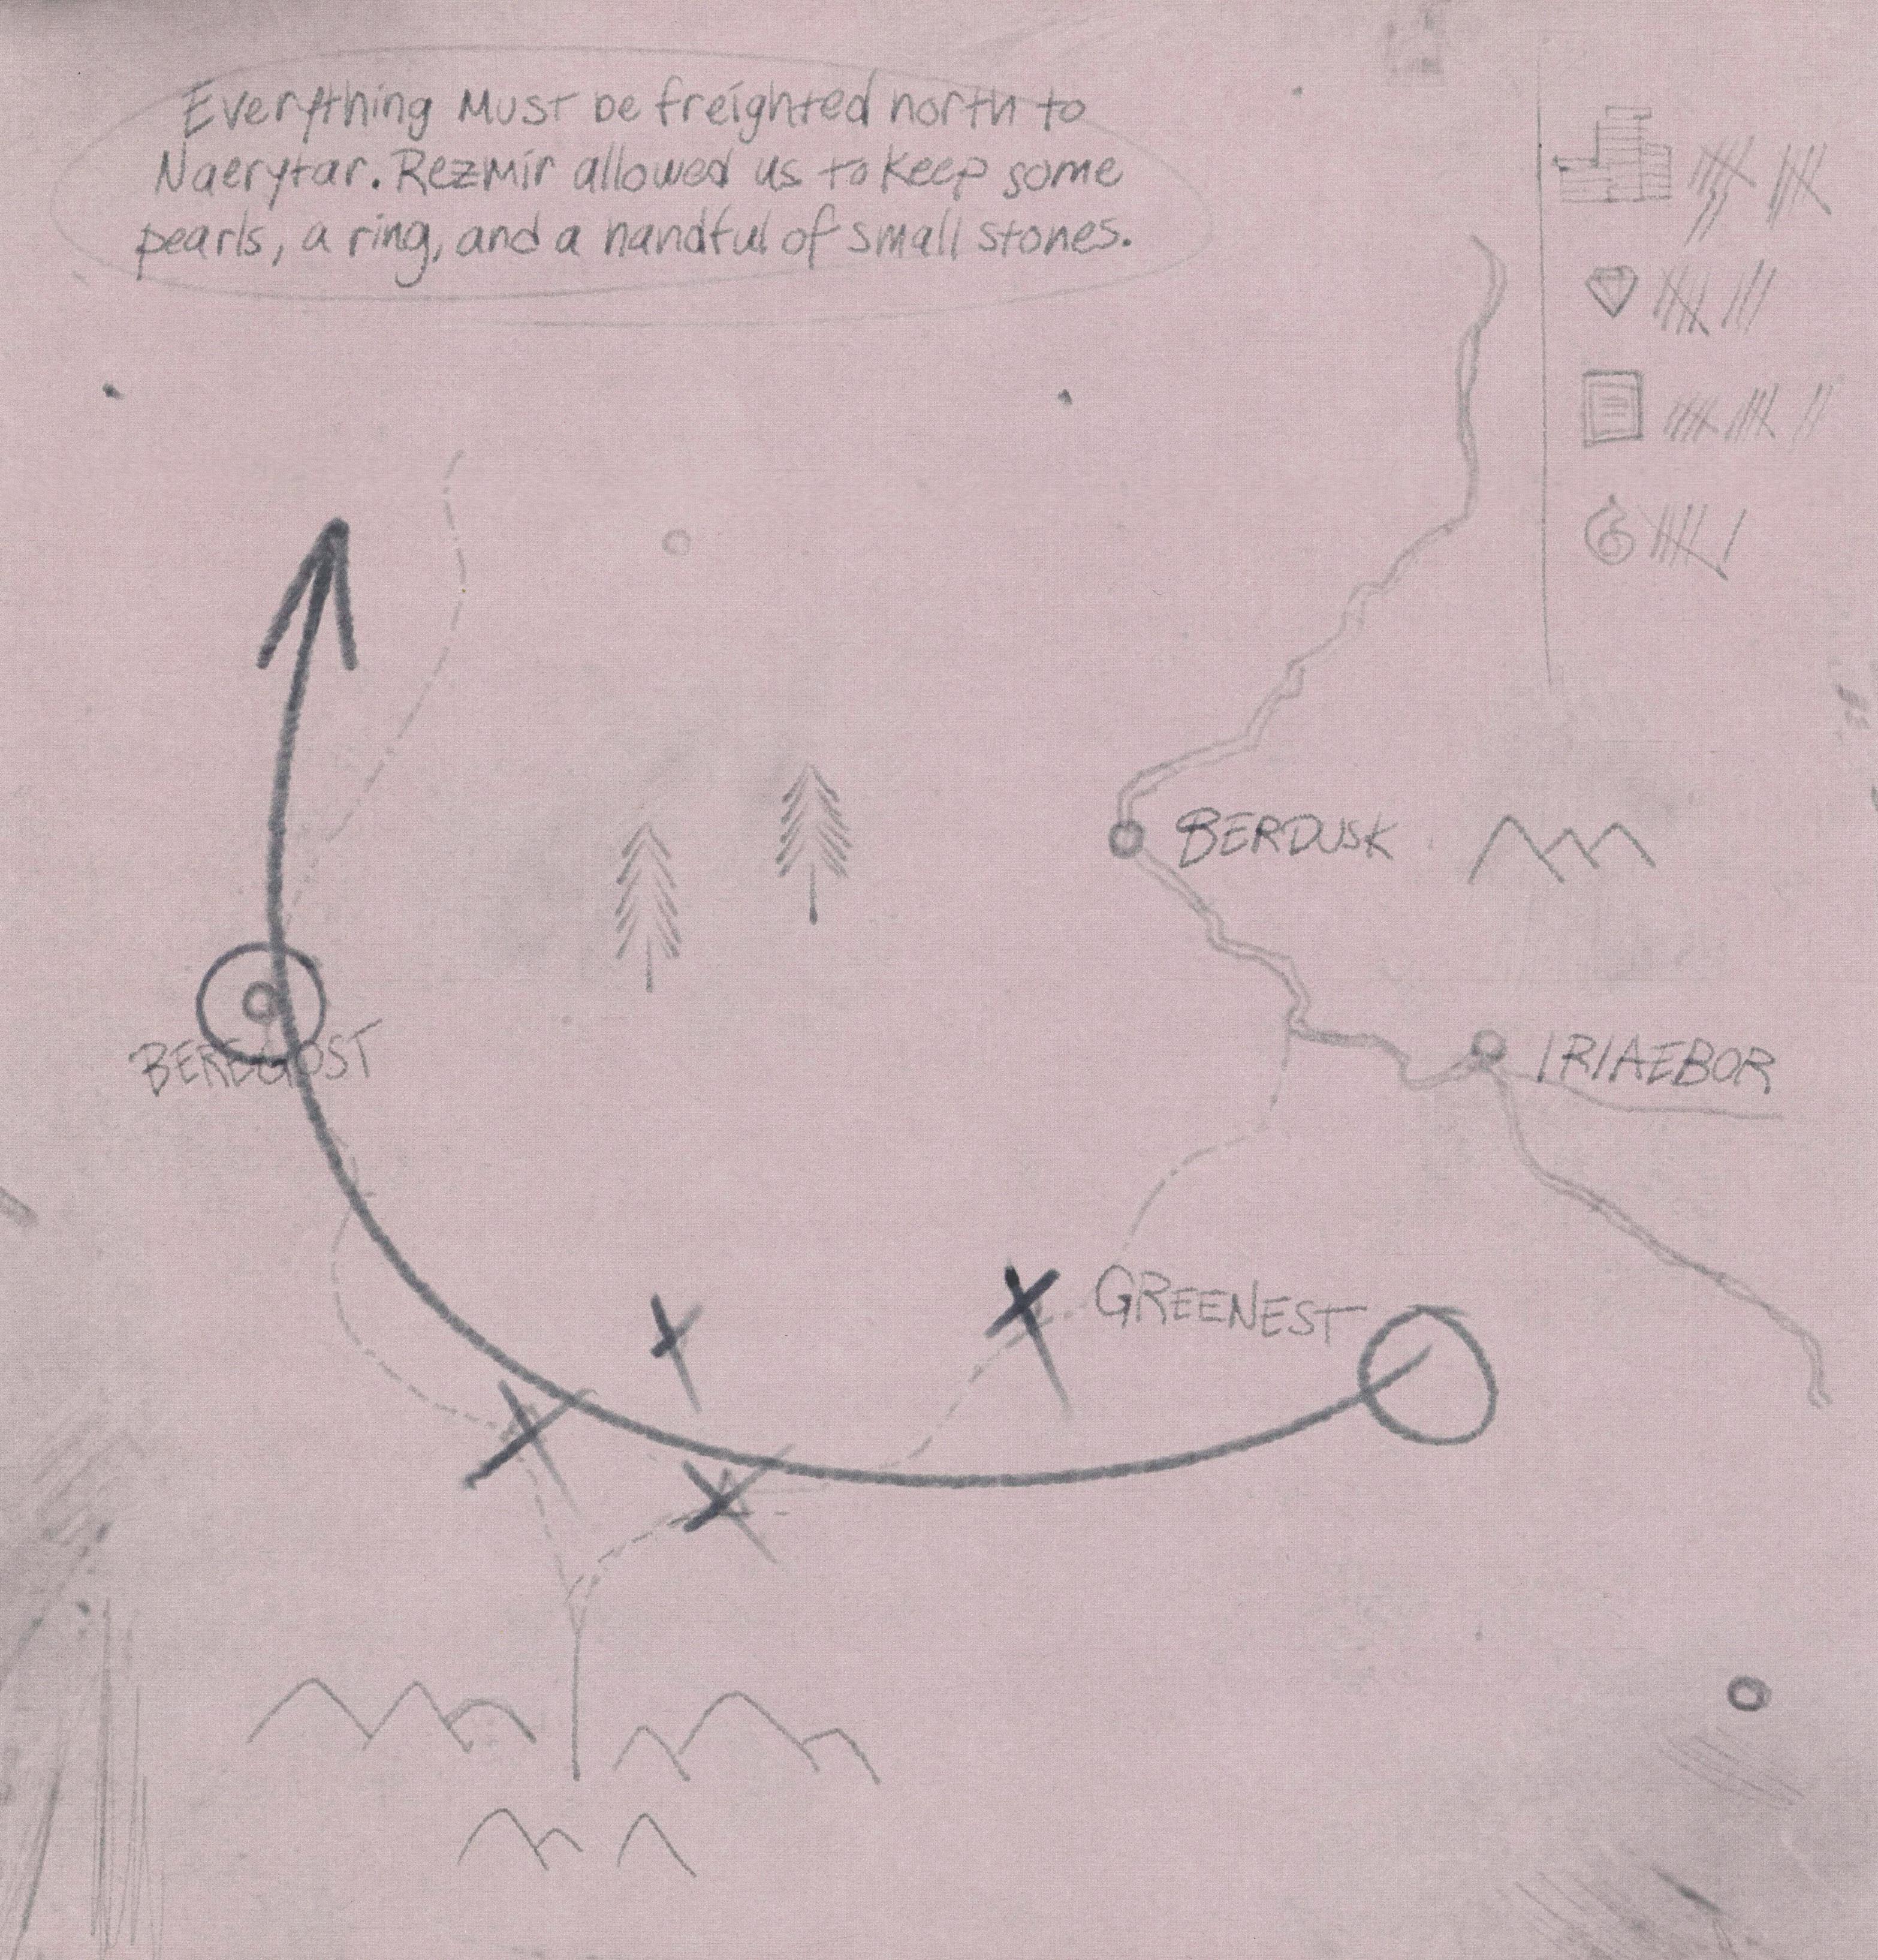 Everything Must be freighted north to
Naerytar. Rezmir allowed us to keep some
pearls, a ring, and a handful of small stones.
BERDUSK
BEREGOST
IRIAEBOR
GREENEST